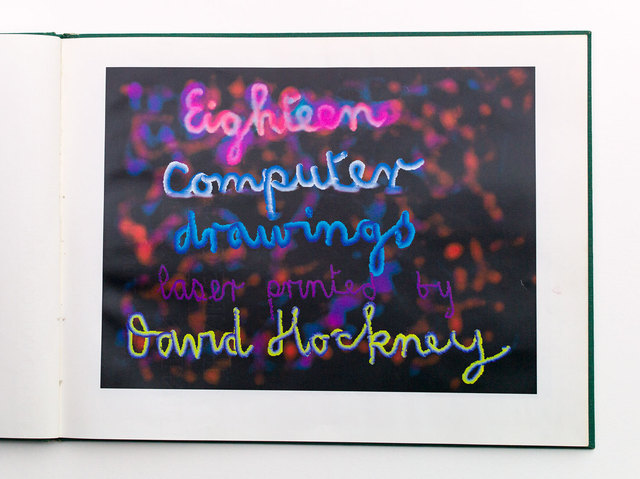 Eighteen
Computer
drawings
laser printed by
David Hockney